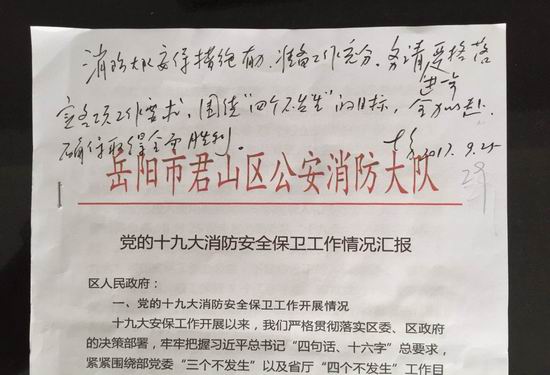 消防大队安保措施有力、准备工作充分。务请严格落
实各项工作要求，围绕“四个不发生”的目标，
确保取得全面胜利。
2017.9.25
岳阳市君山区公安消防大队
党的十九大消防安全保卫工作情况汇报
区人民政府：
一、党的十九大消防安全保卫工作开展情况
十九大安保工作开展以来，我们严格贯彻落实区委、区政府
的决策部署，牢牢把握习近平总书记“四句话、十六字”总要求，
紧紧围绕部党委“三个不发生”以及省厅“四个不发生”工作目